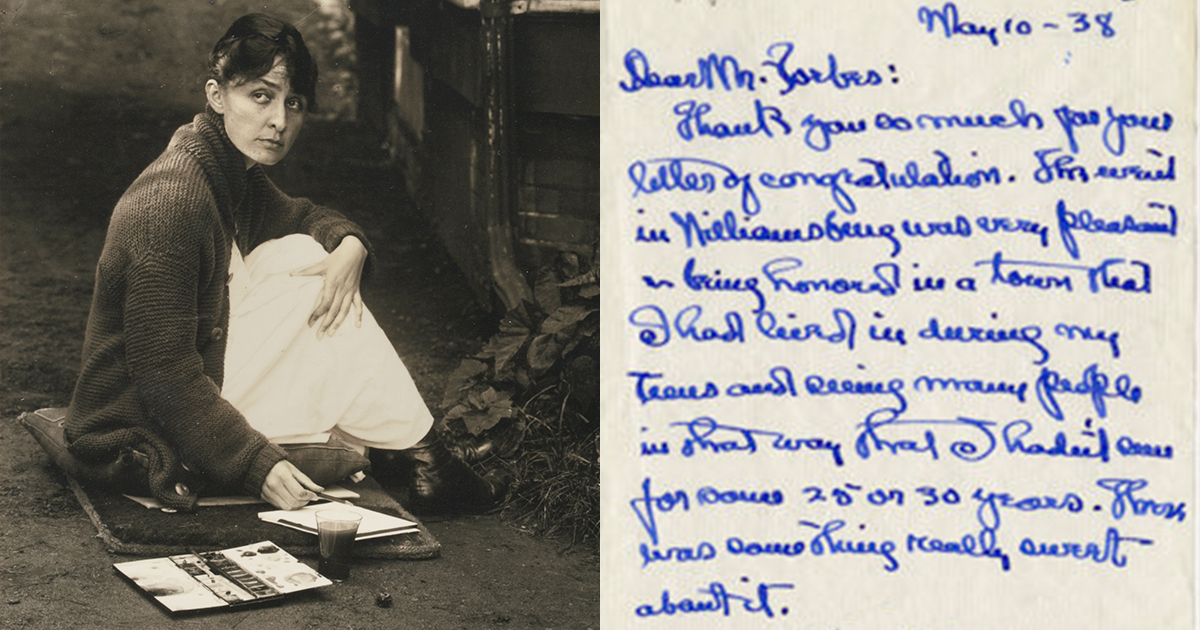 May 10 - 38
Dear Mr. Forbes:
Thank you so much for your
letter of congratulation. The visit
in Williamsburg was very pleasant
in being honored in a town that
I had lived in during my
teens and seeing many people
in that way that I hadn't seen
for some 25 or 30 years. There
was something really sweet
about it.